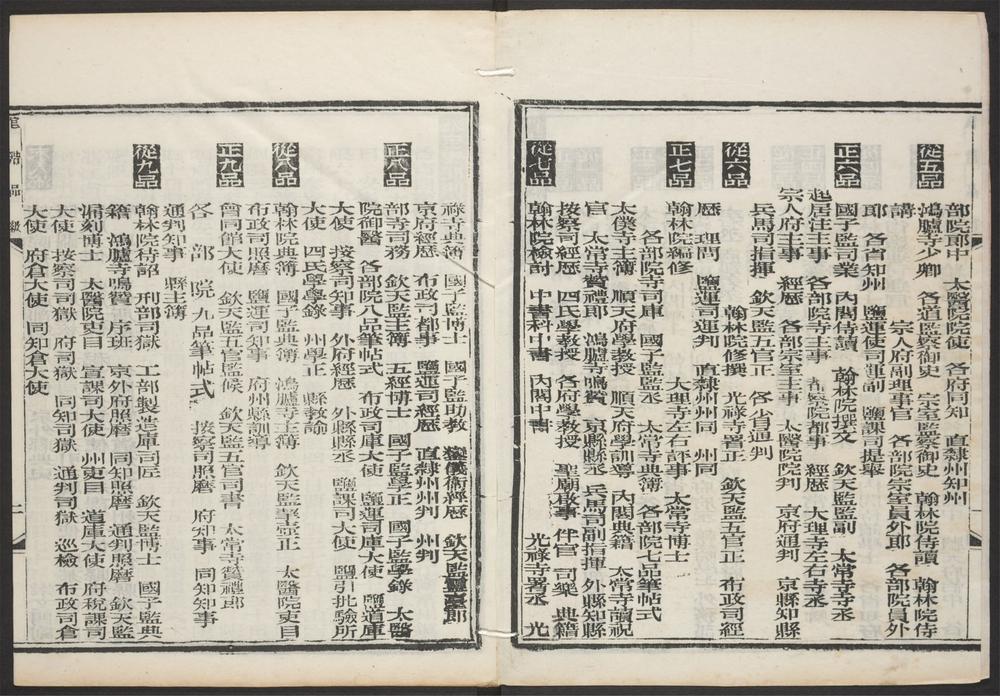 從五品
部院郎中　太醫院院使　各府同知　直隸州知州
鴻臚寺少卿　各道監察御史　宗室監察御史　翰林院侍讀　翰林院侍
講　宗人府副理事官　各部院宗室員外郎　各部院員外
郎　各省知州　鹽運使司運副　鹽課司提舉
正六品
國子監司業　內閣侍讀　翰林院撰文　欽天監監副　太常寺寺丞
起居注主事　各部院寺主事　都察院都事　經歷　大理寺左右寺丞
宗人府主事　經歷　各部宗室主事　太醫院院判　京府通判　京縣知縣
兵馬司指揮　欽天監五官正　各省通判
從六品
翰林院修撰　光祿寺署正　欽天監五官正　布政司經
歷　理問　鹽運司運判　直隸州州同　州同
正七品
翰林院編修　大理寺左右評事　太常寺博士
各部院寺司庫　國子監監丞　太常寺典簿　各部院七品筆帖式
太僕寺主簿　順天府學教授　順天府學訓導　內閣典籍　太常寺讀祝
官　太常寺贊禮郎　鴻臚寺鳴贊　京縣縣丞　兵馬司副指揮　外縣知縣
按察司經歷　四氏學教授　各府學教授　聖廟執事　伴官　司樂　典籍
從七品
翰林院檢討　中書科中書　內閣中書　光祿寺署丞　光
祿寺典簿　國子監博士　國子監助教　鑾儀衛經歷　欽天監靈臺郎
京府經歷　布政司都事　鹽運司經歷　直隸州州判　州判
正八品
部寺司務　欽天監主簿　五經博士　國子監學正　國子監學錄　太醫
院御醫　各部院八品筆帖式　布政司庫大使　鹽運司庫大使　鹽道庫
大使　按察司知事　外府經歷　外縣縣丞　鹽課司大使　鹽引批驗所
大使　四氏學學錄　州學正　縣教諭
從八品
翰林院典簿　國子監典簿　鴻臚寺主簿　欽天監挈壺正　太醫院吏目
布政司照磨　鹽運司知事　府州縣訓導
正九品
會同館大使　欽天監五官監候　欽天監五官司書　太常寺贊禮郎
各部院九品筆帖式　按察司照磨　府知事　同知知事
通判知事　縣主簿
從九品
翰林院待詔　刑部司獄　工部製造庫司匠　欽天監博士　國子監典
籍　鴻臚寺鳴贊　序班　京外府照磨　同知照磨　通判照磨　欽天監
漏刻博士　太醫院吏目　宣課司大使　州吏目　道庫大使　府稅課司
大使　按察司司獄　府司獄　同知司獄　通判司獄　巡檢　布政司倉
大使　府倉大使　同知倉大使